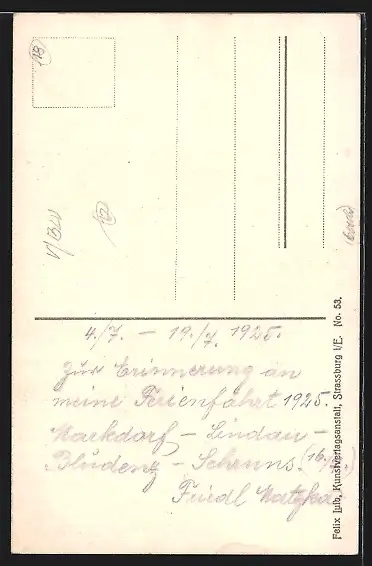 4./7. – 19./7. 1925.
Zur Erinnerung an
meine Ferienfahrt 1925.
Markdorf – Lindau –
Bludenz – Schruns. (16./7.)
Friedl Matzka
Felix Luib, Kunstverlagsanstalt, Strassburg i/E. No. 53.